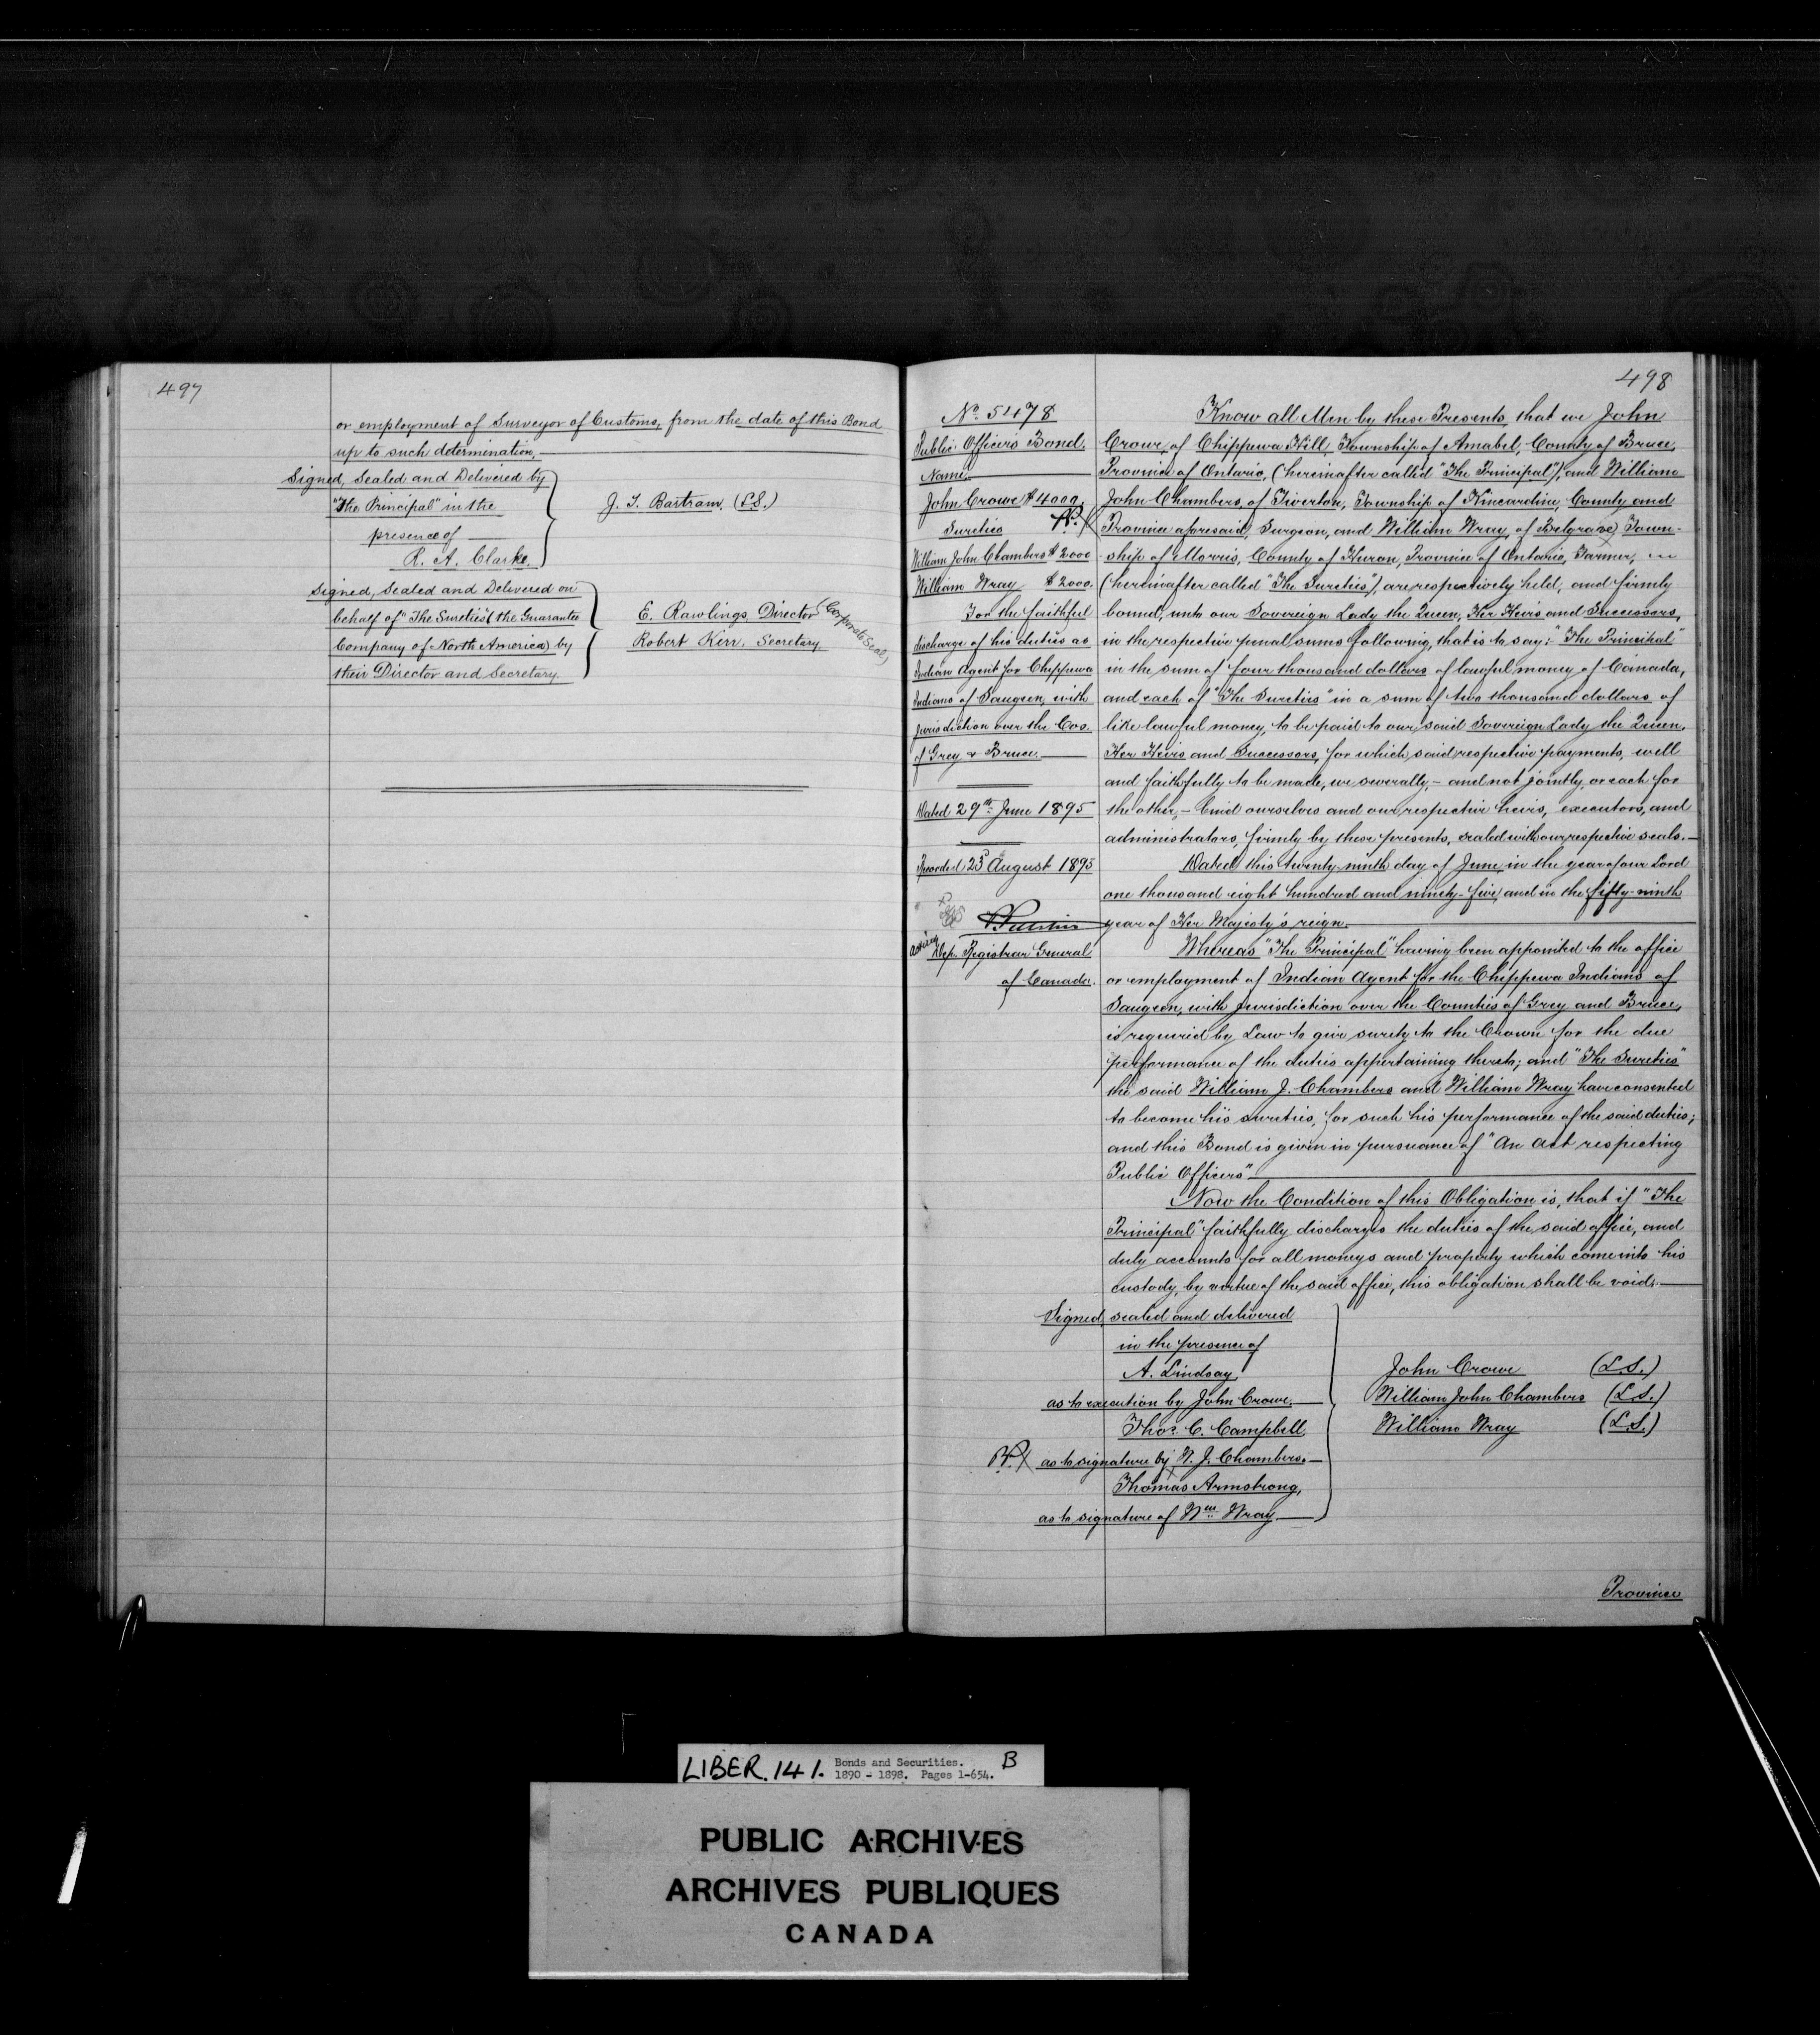 497
or employment of Surveyor of Customs, from the date of this Bond
up to such determination.
Signed, Sealed and Delivered by
"The Principal" in the
presence of
R. A. Clarke.
J. T. Bartram. (L.S.)
Signed, Sealed and Delivered on
behalf of "The Sureties" (the Guarantee
Company of North America) by
their Director and Secretary.
E. Rawlings, Director
Robert Kerr, Secretary
(Corporate Seal)
498
No. 5478
Public Officers Bond.
Name.
John Crowe $4000
Sureties
William John Chambers $2000
William Wray $2000.
For the faithful
discharge of his duties as
Indian Agent for Chippewa
Indians of Saugeen, with
jurisdiction over the Cos.
of Grey & Bruce.
Dated 29th June 1895
Recorded 23d August 1895
Acting Dep. Registrar General
of Canada.
Know all Men by these Presents, that we John
Crowe, of Chippewa Hill, Township of Amabel, County of Bruce,
Province of Ontario, (hereinafter called "The Principal"), and William
John Chambers, of Tiverton, Township of Kincardine, County and
Province aforesaid, Surgeon, and William Wray, of Belgrave, Town-
-ship of Morris, County of Huron, Province of Ontario, Farmer,
(hereinafter called "The Sureties"), are respectively held, and firmly
bound, unto our Sovereign Lady the Queen, Her Heirs and Successors,
in the respective penal sums following, that is to say: "The Principal"
in the sum of four thousand dollars of lawful money of Canada,
and each of "The Sureties" in a sum of two thousand dollars of
like lawful money, to be paid to our said Sovereign Lady the Queen,
Her Heirs and Successors, for which said respective payments, well
and faithfully to be made, we severally, – and not jointly, or each for
the other, – bind ourselves and our respective heirs, executors, and
administrators, firmly by these presents, sealed with our respective seals. –
Dated this twenty-ninth day of June, in the year of our Lord
one thousand eight hundred and ninety-five, and in the fifty-ninth
year of Her Majesty's reign.
Whereas "The Principal" having been appointed to the office
or employment of Indian Agent for the Chippewa Indians of
Saugeen, with jurisdiction over the Counties of Grey and Bruce,
is required by Law to give surety to the Crown for the due
performance of the duties appertaining thereto; and "The Sureties"
the said William J. Chambers and William Wray have consented
to become his sureties, for such his performance of the said duties;
and this Bond is given in pursuance of "An Act respecting
Public Officers"
Now the Condition of this Obligation is, that if "The
Principal" faithfully discharges the duties of the said office, and
duly accounts for all moneys and property which come into his
custody, by virtue of the said office, this obligation shall be void.
Signed, sealed and delivered
in the presence of
A. Lindsay
as to execution by John Crowe.
Thos. C. Campbell,
as to signature by W. J. Chambers.
Thomas Armstrong,
as to signature of Wm Wray.
John Crowe (L.S.)
William John Chambers (L.S.)
William Wray (L.S.)
Province
LIBER. 141. Bonds and Securities. B
1890 - 1898. Pages 1-654.
PUBLIC ARCHIVES
ARCHIVES PUBLIQUES
CANADA